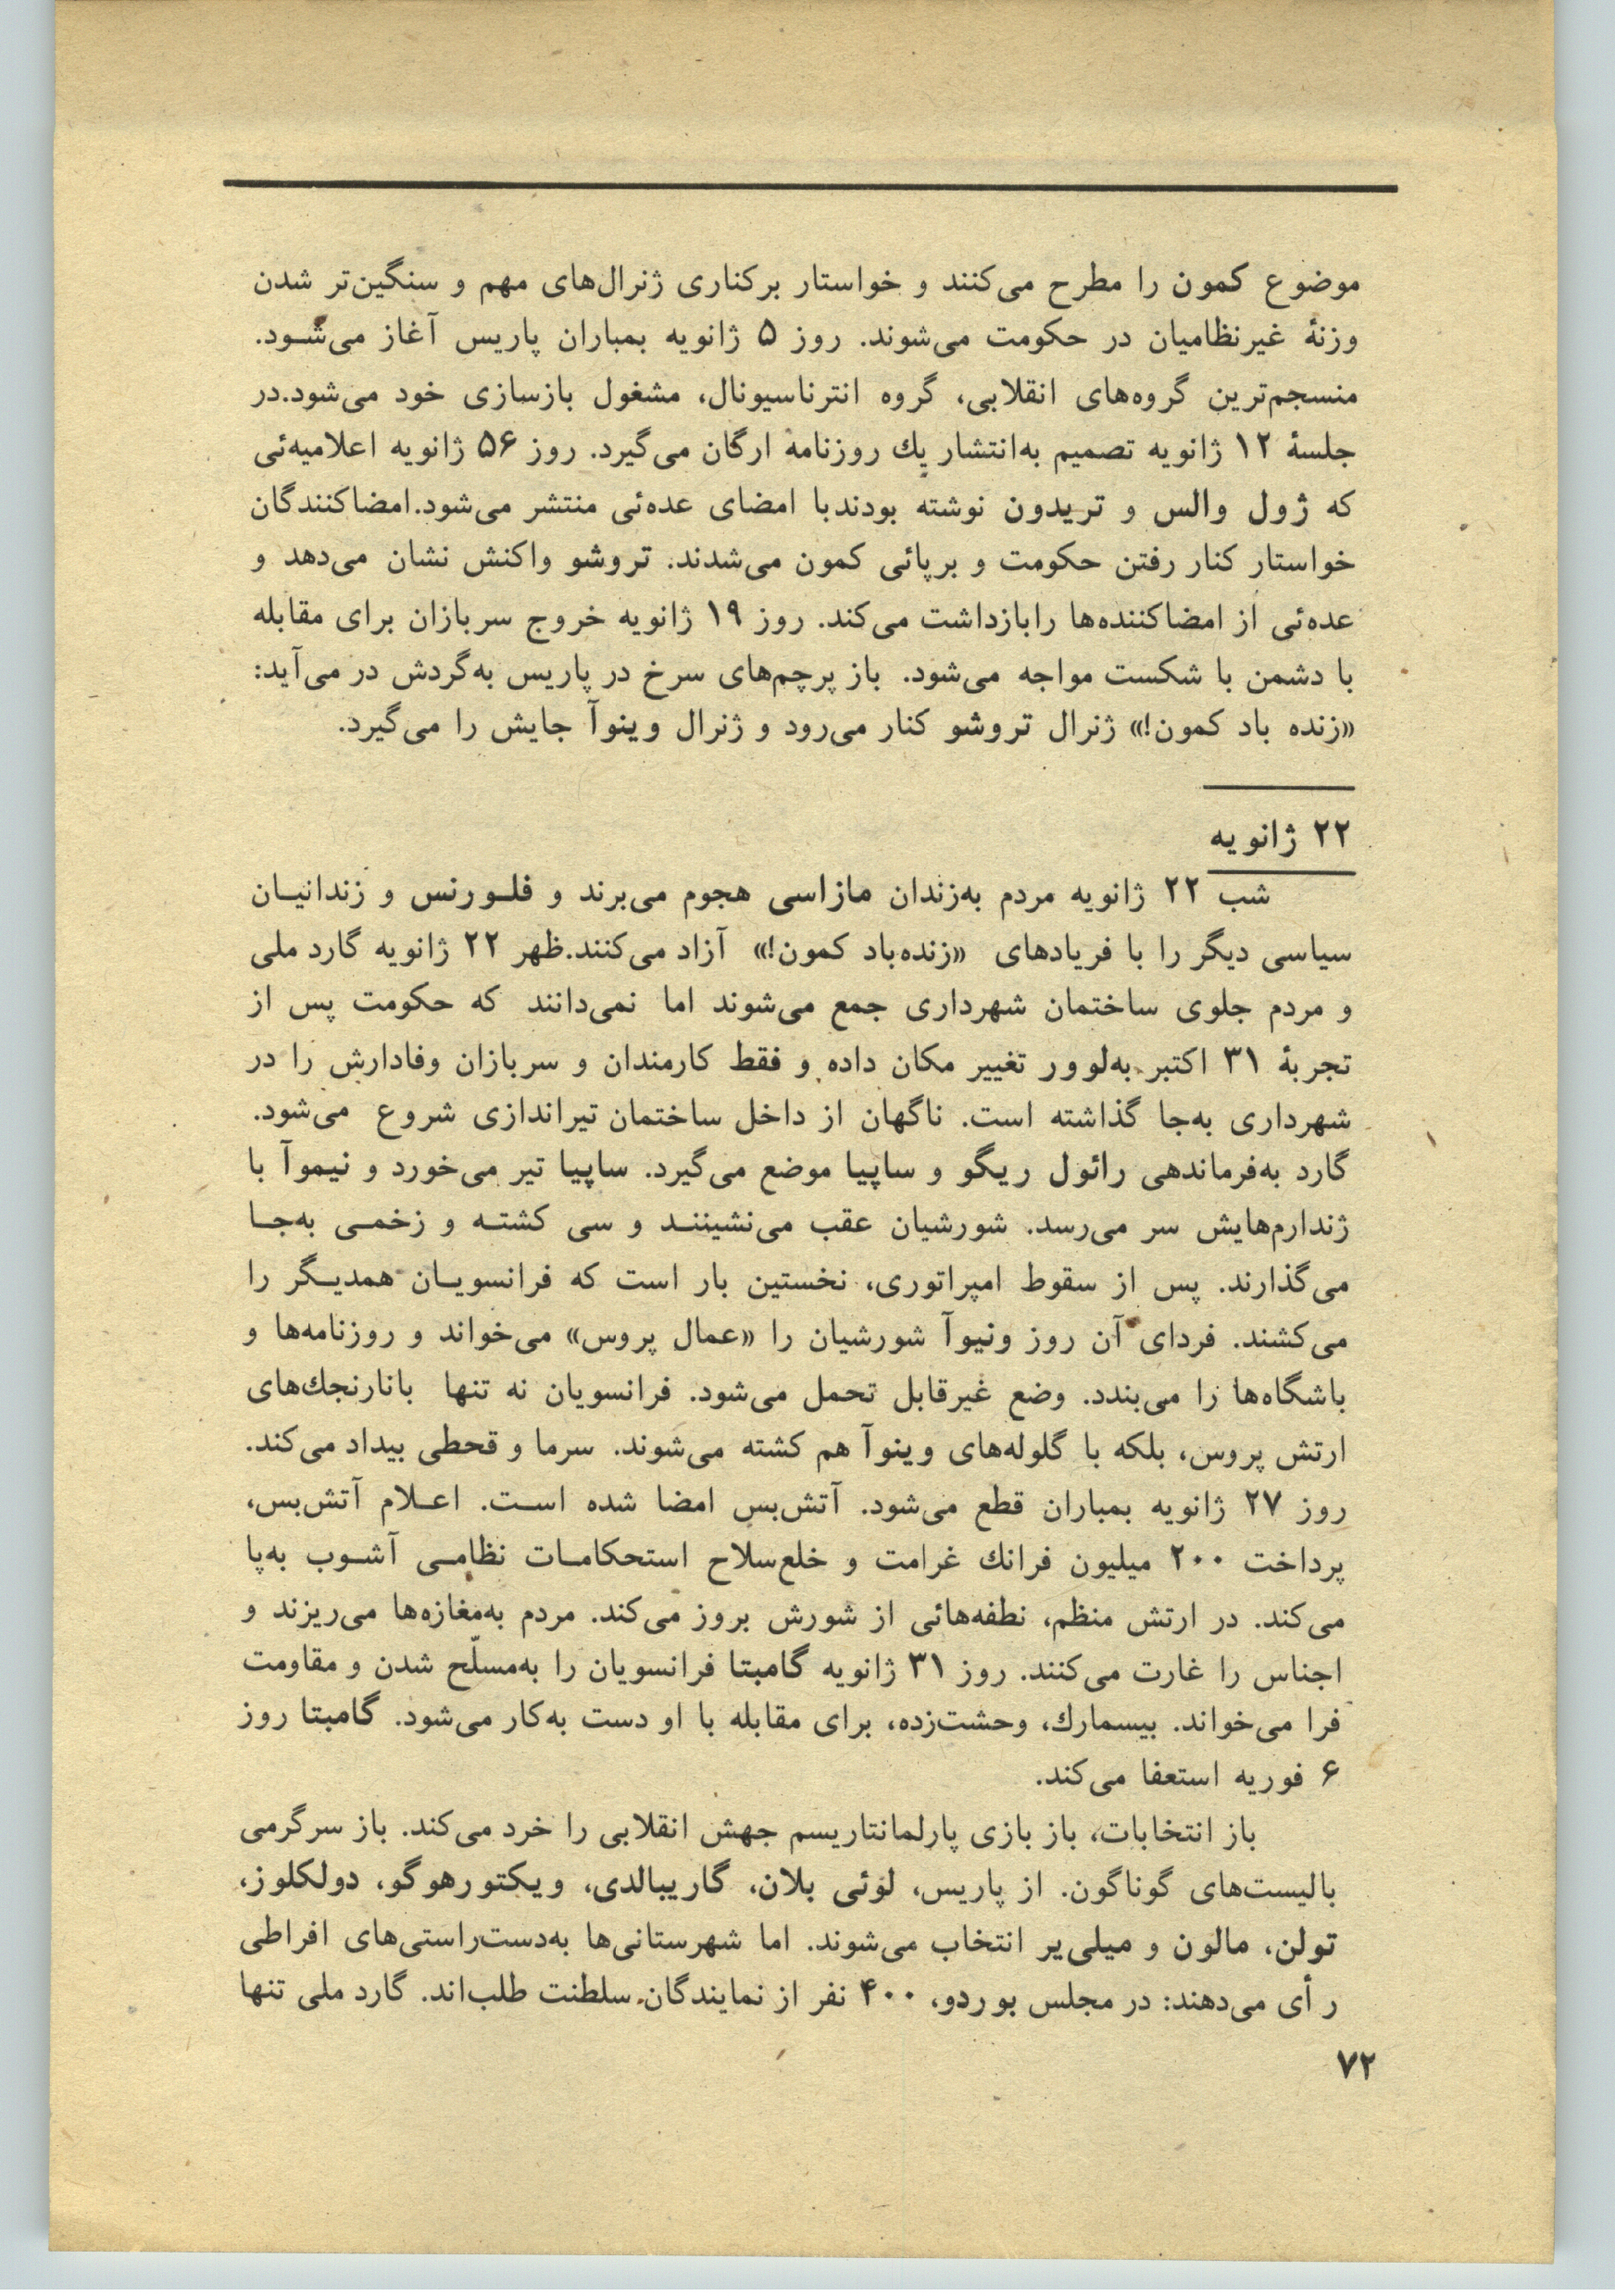 موضوع کمون را مطرح می‌کنند و خواستار برکناری ژنرال‌های مهم و سنگین‌تر شدن
وزنهٔ غیرنظامیان در حکومت می‌شوند. روز ۵ ژانویه بمباران پاریس آغاز می‌شود.
منسجم‌ترین گروه‌های انقلابی، گروه انترناسیونال، مشغول بازسازی خود می‌شود.در
جلسهٔ ۱۲ ژانویه تصمیم به‌انتشار یك روزنامه ارگان می‌گیرد. روز ۵۶ ژانویه اعلامیه‌ئی
که ژول والس و تریدون نوشته بودندبا امضای عده‌ئی منتشر می‌شود.امضاکنندگان
خواستار کنار رفتن حکومت و برپائی کمون می‌شدند. تروشو واکنش نشان می‌دهد و
عده‌ئی از امضاکننده‌ها رابازداشت می‌کند. روز ۱۹ ژانویه خروج سربازان برای مقابله
با دشمن با شکست مواجه می‌شود. باز پرچم‌های سرخ در پاریس به‌گردش در می‌آید:
«زنده باد کمون!» ژنرال تروشو کنار می‌رود و ژنرال وینوآ جایش را می‌گیرد.
۲۲ ژانویه
شب ۲۲ ژانویه مردم به‌زندان مازاسی هجوم می‌برند و فلورنس و زندانیان
سیاسی دیگر را با فریادهای «زنده‌باد کمون!» آزاد می‌کنند.ظهر ۲۲ ژانویه گارد ملی
و مردم جلوی ساختمان شهرداری جمع می‌شوند اما نمی‌دانند که حکومت پس از
تجربهٔ ۳۱ اکتبر به‌لوور تغییر مکان داده و فقط کارمندان و سربازان وفادارش را در
شهرداری به‌جا گذاشته است. ناگهان از داخل ساختمان تیراندازی شروع می‌شود.
گارد به‌فرماندهی رائول ریگو و ساپیا موضع می‌گیرد. ساپیا تیر می‌خورد و نیموآ با
ژندارم‌هایش سر می‌رسد. شورشیان عقب می‌نشینند و سی کشته و زخمی به‌جا
می‌گذارند. پس از سقوط امپراتوری، نخستین بار است که فرانسویان همدیگر را
می‌کشند. فردای آن روز ونیوآ شورشیان را «عمال پروس» می‌خواند و روزنامه‌ها و
باشگاه‌ها را می‌بندد. وضع غیرقابل تحمل می‌شود. فرانسویان نه تنها بانارنجك‌های
ارتش پروس، بلکه با گلوله‌های وینوآ هم کشته می‌شوند. سرما و قحطی بیداد می‌کند.
روز ۲۷ ژانویه بمباران قطع می‌شود. آتش‌بس امضا شده است. اعلام آتش‌بس،
پرداخت ۲۰۰ میلیون فرانك غرامت و خلع‌سلاح استحکامات نظامی آشوب به‌پا
می‌کند. در ارتش منظم، نطفه‌هائی از شورش بروز می‌کند. مردم به‌مغازه‌ها می‌ریزند و
اجناس را غارت می‌کنند. روز ۳۱ ژانویه گامبتا فرانسویان را به‌مسلّح شدن و مقاومت
فرا می‌خواند. بیسمارك، وحشت‌زده، برای مقابله با او دست به‌کار می‌شود. گامبتا روز
۶ فوریه استعفا می‌کند.
باز انتخابات، باز بازی پارلمانتاریسم جهش انقلابی را خرد می‌کند. باز سرگرمی
بالیست‌های گوناگون. از پاریس، لوئی بلان، گاریبالدی، ویکتورهوگو، دولکلوز،
تولن، مالون و میلی‌یر انتخاب می‌شوند. اما شهرستانی‌ها به‌دست‌راستی‌های افراطی
رأی می‌دهند: در مجلس بوردو، ۴۰۰ نفر از نمایندگان سلطنت طلب‌اند. گارد ملی تنها
۷۲